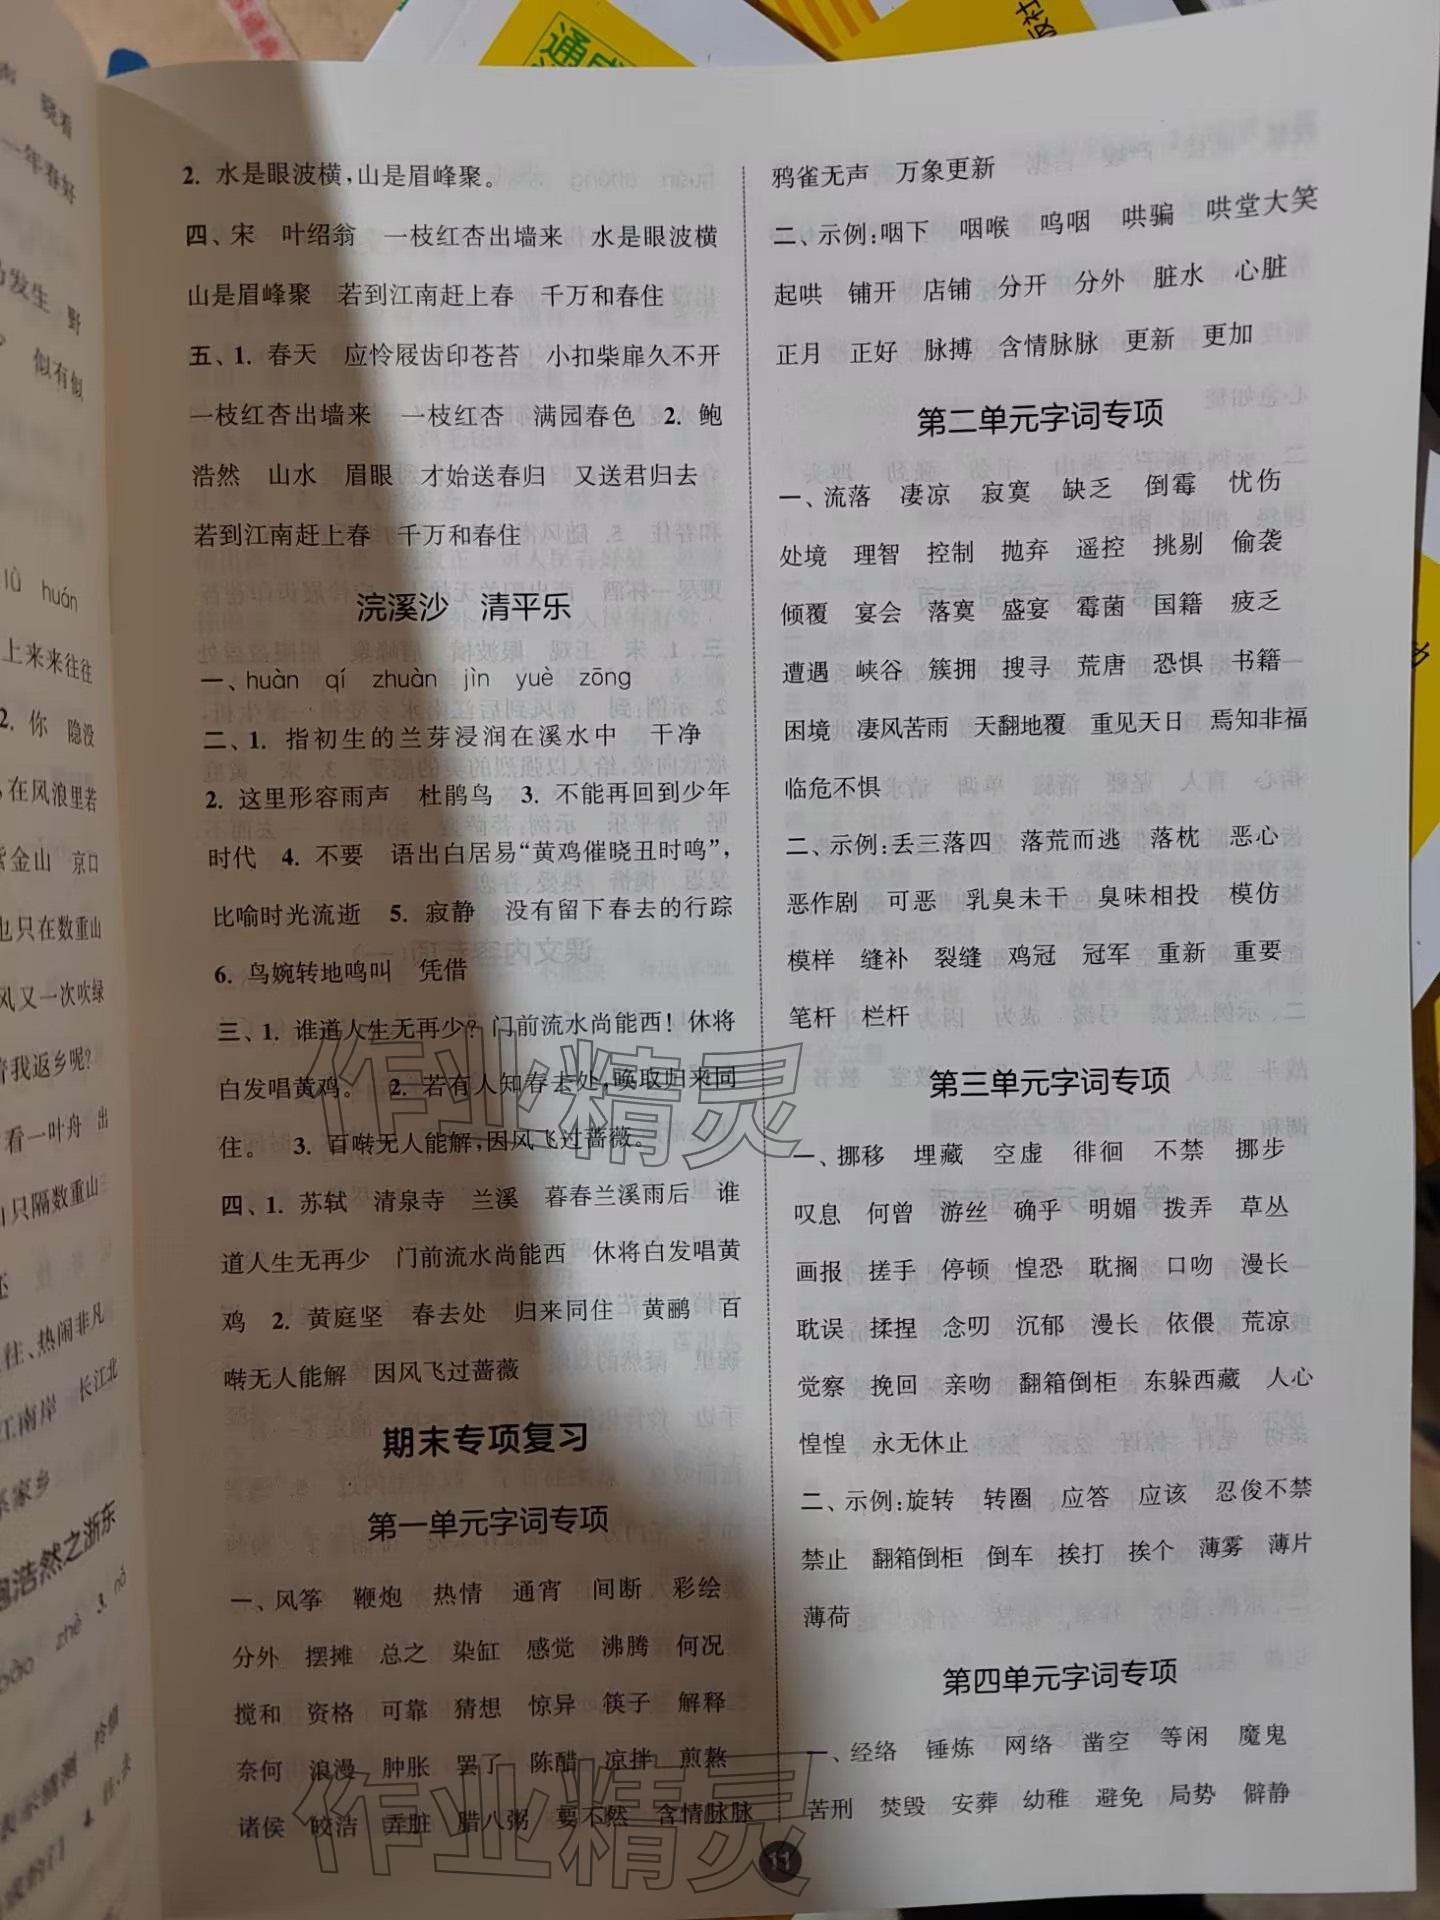 2. 水是眼波横,山是眉峰聚。
四、宋 叶绍翁 一枝红杏出墙来 水是眼波横
山是眉峰聚 若到江南赶上春 千万和春住
五、1. 春天 应怜屐齿印苍苔 小扣柴扉久不开
一枝红杏出墙来 一枝红杏 满园春色 2. 鲍
浩然 山水 眉眼 才始送春归 又送君归去
若到江南赶上春 千万和春住
浣溪沙 清平乐
一、huàn qí zhuàn jìn yuè zōng
二、1. 指初生的兰芽浸润在溪水中 干净
2. 这里形容雨声 杜鹃鸟 3. 不能再回到少年
时代 4. 不要 语出白居易“黄鸡催晓丑时鸣”,
比喻时光流逝 5. 寂静 没有留下春去的行踪
6. 鸟婉转地鸣叫 凭借
三、1. 谁道人生无再少?门前流水尚能西!休将
白发唱黄鸡。 2. 若有人知春去处,唤取归来同
住。 3. 百啭无人能解,因风飞过蔷薇。
四、1. 苏轼 清泉寺 兰溪 暮春兰溪雨后 谁
道人生无再少 门前流水尚能西 休将白发唱黄
鸡 2. 黄庭坚 春去处 归来同住 黄鹂 百
啭无人能解 因风飞过蔷薇
期末专项复习
第一单元字词专项
一、风筝 鞭炮 热情 通宵 间断 彩绘
分外 摆摊 总之 染缸 感觉 沸腾 何况
搅和 资格 可靠 猜想 惊异 筷子 解释
奈何 浪漫 肿胀 罢了 陈醋 凉拌 煎熬
诸侯 皎洁 弄脏 腊八粥 要不然 含情脉脉
鸦雀无声 万象更新
二、示例:咽下 咽喉 呜咽 哄骗 哄堂大笑
起哄 铺开 店铺 分开 分外 脏水 心脏
正月 正好 脉搏 含情脉脉 更新 更加
第二单元字词专项
一、流落 凄凉 寂寞 缺乏 倒霉 忧伤
处境 理智 控制 抛弃 遥控 挑剔 偷袭
倾覆 宴会 落寞 盛宴 霉菌 国籍 疲乏
遭遇 峡谷 簇拥 搜寻 荒唐 恐惧 书籍
困境 凄风苦雨 天翻地覆 重见天日 焉知非福
临危不惧
二、示例:丢三落四 落荒而逃 落枕 恶心
恶作剧 可恶 乳臭未干 臭味相投 模仿
模样 缝补 裂缝 鸡冠 冠军 重新 重要
笔杆 栏杆
第三单元字词专项
一、挪移 埋藏 空虚 徘徊 不禁 挪步
叹息 何曾 游丝 确乎 明媚 拨弄 草丛
画报 搓手 停顿 惶恐 耽搁 口吻 漫长
耽误 揉捏 念叨 沉郁 漫长 依偎 荒凉
觉察 挽回 亲吻 翻箱倒柜 东躲西藏 人心
惶惶 永无休止
二、示例:旋转 转圈 应答 应该 忍俊不禁
禁止 翻箱倒柜 倒车 挨打 挨个 薄雾 薄片
薄荷
第四单元字词专项
一、经络 锤炼 网络 凿空 等闲 魔鬼
苦刑 焚毁 安葬 幼稚 避免 局势 僻静
11
作业精灵
作业精灵